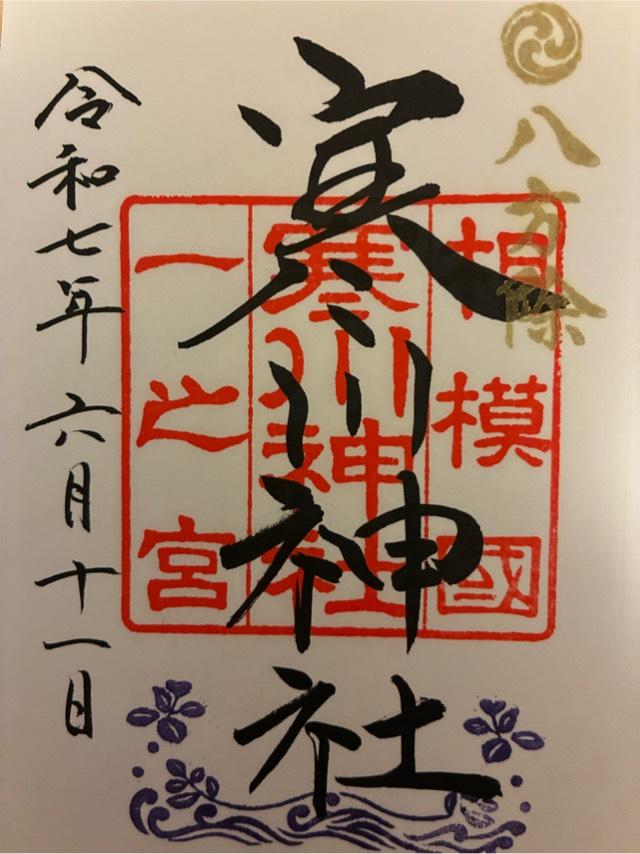 八方除
寒川神社
相模國
寒川神社
一之宮
令和七年六月十一日